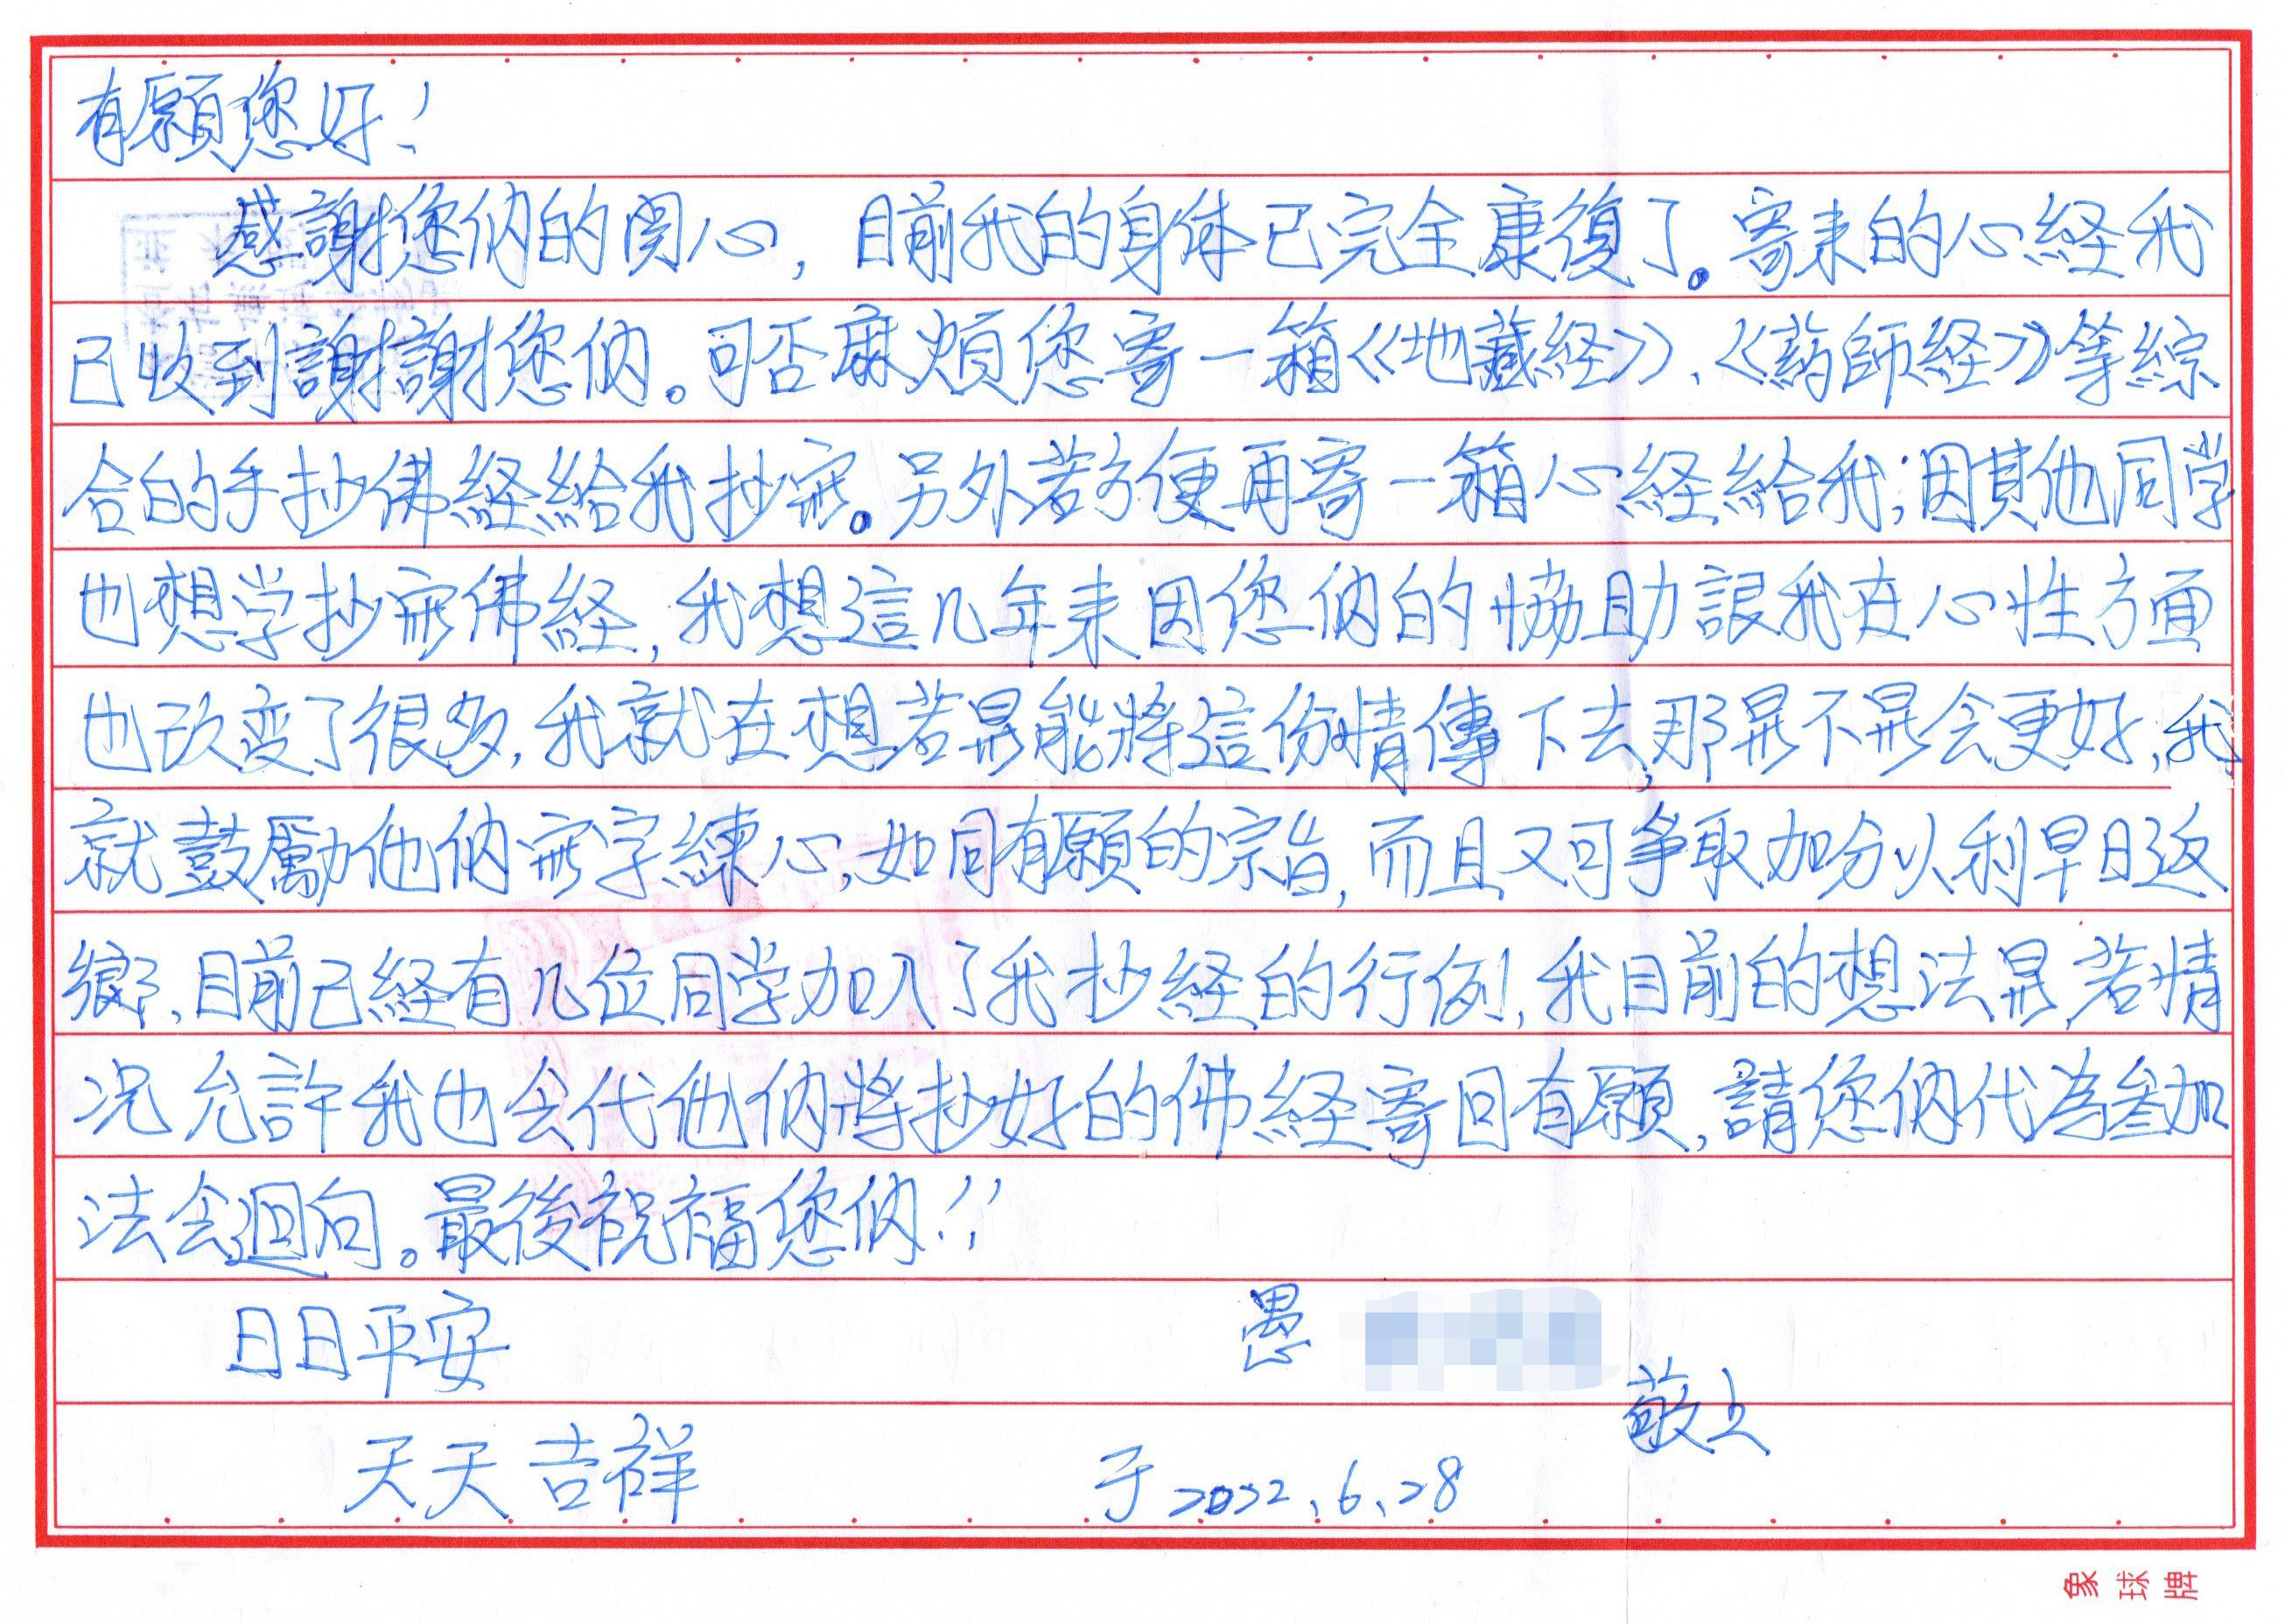 有願您好！
感謝您们的関心，目前我的身体已完全康復了。寄来的心経我
已收到謝謝您们。可否麻煩您寄一箱《地藏経》、《葯師経》等綜
合的手抄佛経給我抄寫。另外若方便再寄一箱心経給我；因其他同学
也想学抄寫佛経，我想這几年来因您们的協助讓我在心性方面
也改变了很多，我就在想若是能將這份情傳下去，那是不是会更好，我
就鼓勵他们寫字練心，如同有願的宗旨，而且又可爭取加分以利早日返
鄉、目前已経有几位同学加入了我抄経的行例，我目前的想法是，若情
况允許我也会代他们將抄好的佛経寄回有願，請您们代為參加
法会迴向。最後祝福您们！！
日日平安
愚
敬上
天天吉祥
于2022、6、28
象球牌